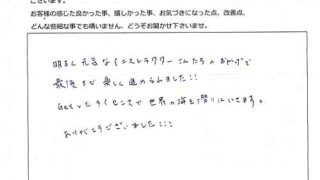 ございます。
お客様の感じた良かった事、嬉しかった事、お気づきになった点、改善点、
どんな些細な事でも構いません、どうぞお聞かせ下さいませ。
明るく元気なインストラクターさんたちのおかげで
最後まで楽しく進められました!!
GETしたライセンスで世界の海を潜りにいきます。
ありがとうございました!!!